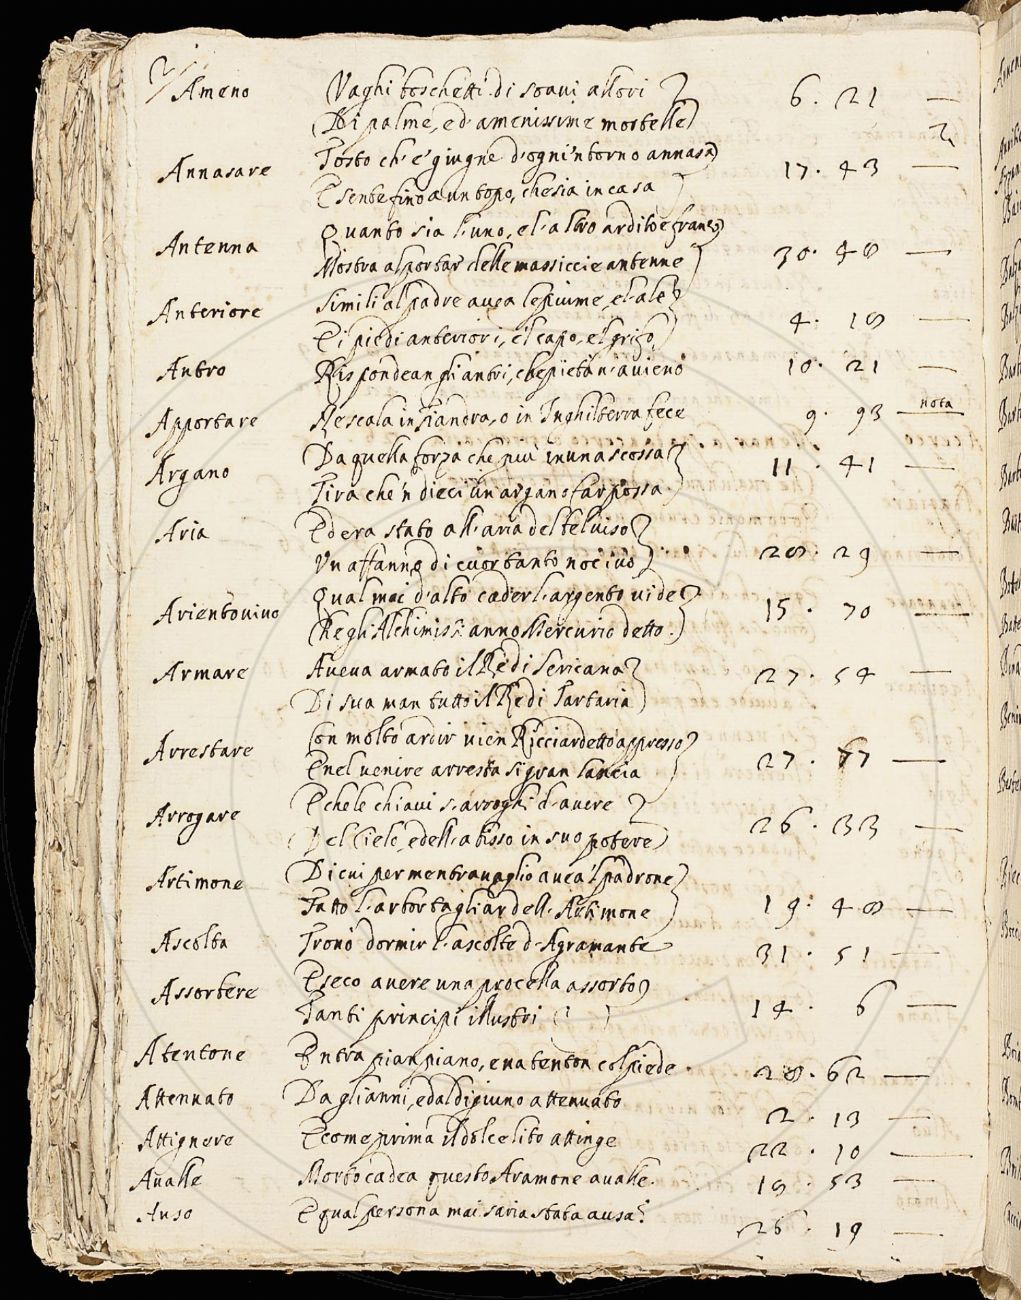 2
Ameno Vaghi boschetti di soavi allori 6 . 21 —
Di palme, ed amenissime mortelle
Annasare Tosto ch'è giugne d'ogni'ntorno annasa 17 . 43 —
E sente fino a un topo, che sia in casa
Antenna Quanto sia l'uno, e l'altro ardito e franco 30 . 48 —
Mostra al portar delle massiccie antenne
Anteriore Simili al padre avea le piume, e l'ale 4 . 18 —
E i piedi anteriori, e'l capo, e'l grifo
Antro Rispondean gli antri, che pietà n'avieno 10 . 21 —
Apportare Ne scala in fiandra, o in Inghilterra fece 9 . 93 — nota
Argano Da quella forza che più in una scossa 11 . 41 —
Tira che'n dieci un argano far possa.
Aria Ed era stato all'aria del bel viso 28 . 29 —
Un affanno di cuor tanto nocivo
Arientovivo Qual mai d'alto cader l'argento vide 15 . 70 —
Che gli Alchimisti anno Mercurio detto.
Armare Aveva armato il Re di Sericana 27 . 54 —
Di sua man tutto il Re di Tartaria
Arrestare Con molto ardir vien Ricciardetto appresso 27 . 77 —
E nel venire arresta si gran lancia
Arrogare E che le chiavi s'arroghi d'avere 26 . 33 —
Del Cielo, e dell'abisso in suo potere
Artimone Di cui per men travaglio avea'l padrone 19 . 48 —
Fatto l'arbor tagliar dell'Artimone
Ascolta Trovò dormir l'ascolte d'Agramante 31 . 51 —
Assorbere E seco avere una procella assorto 14 . 6 —
Tanti principi illustri
Atentone Entra pian piano, e va tenton col piede 28 . 62 —
Attenuato Dagli anni, e dal digiuno attenuato 2 . 13 —
Attignere E come prima il dolce lito attinge 22 . 10 —
Avalle Morto cadea questo Aramone a valle. 18 . 53 —
Auso E qual persona mai saria stata ausa? 26 . 19 —